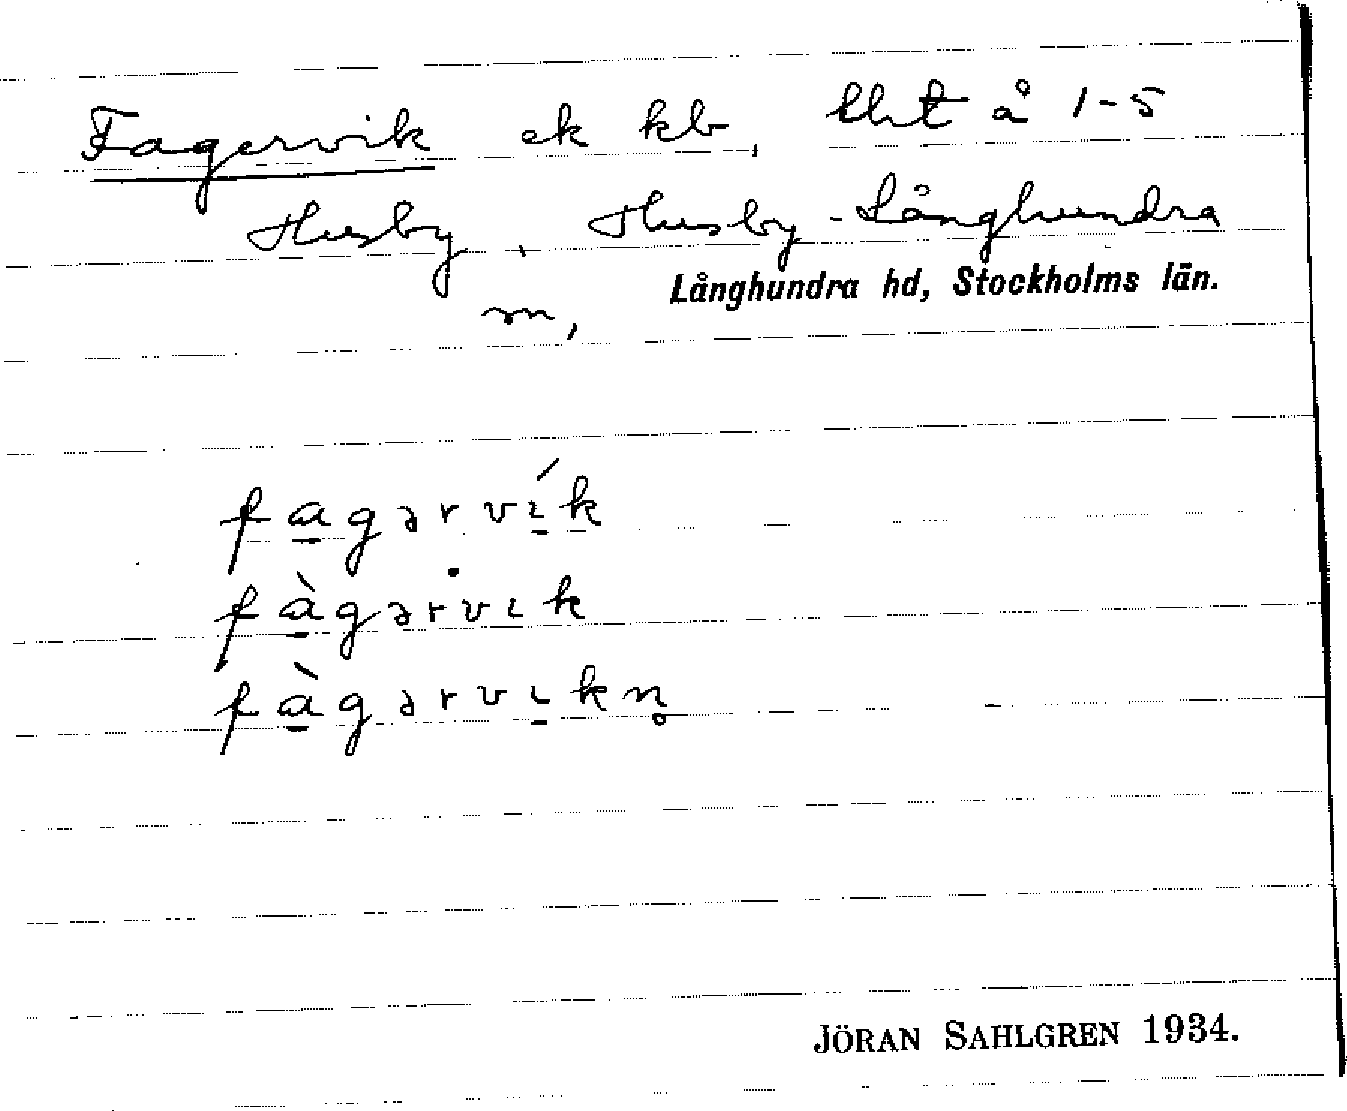 Fagervik ek kb, lht å 1-5
Husby, Husby-Långhundra
Långhundra hd, Stockholms län.
m,
fa̲gərvı̲́k
fà̲gərvık
fà̲gərvı̲kn̥
JÖRAN SAHLGREN 1934.